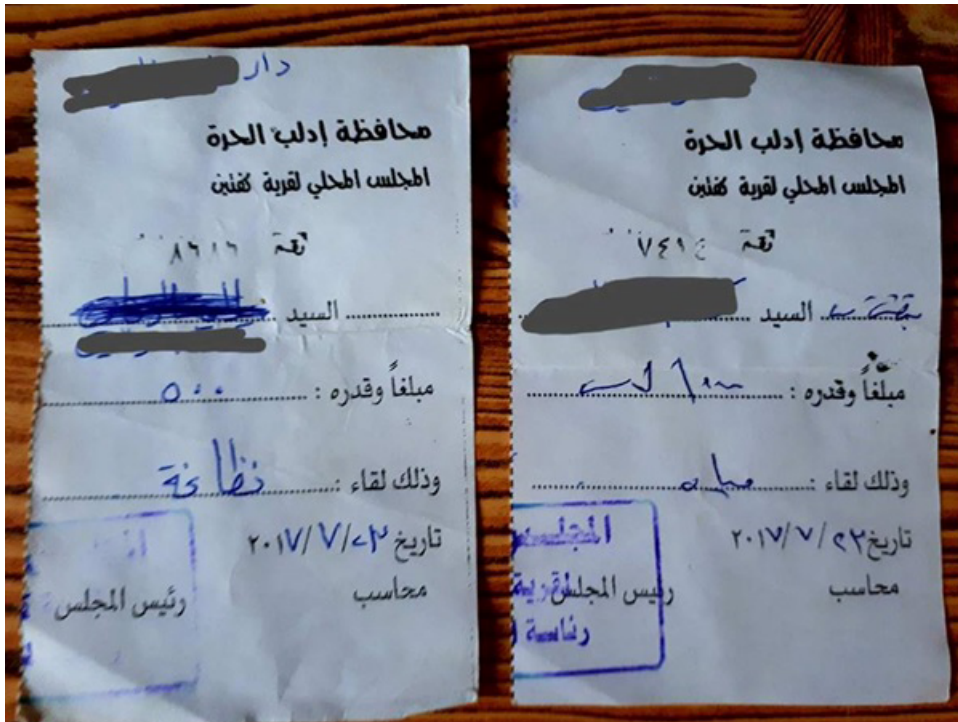 دار
محافظة إدلب الحرة
المجلس المحلي لقرية كفتين
رقم ٨٦١٦
السيد
مبلغاً وقدره : ٥٠٠
وذلك لقاء : نظافة
تاريخ ٢٣/ ٧/ ٢٠١٧
محاسب رئيس المجلس
محافظة إدلب الحرة
المجلس المحلي لقرية كفتين
٧٤٩٤
السيد
مبلغاً وقدره :
وذلك لقاء : مياه
تاريخ ٢٣/ ٧/ ٢٠١٧
محاسب رئيس المجلس
المجلس
لقرية
رئاسة